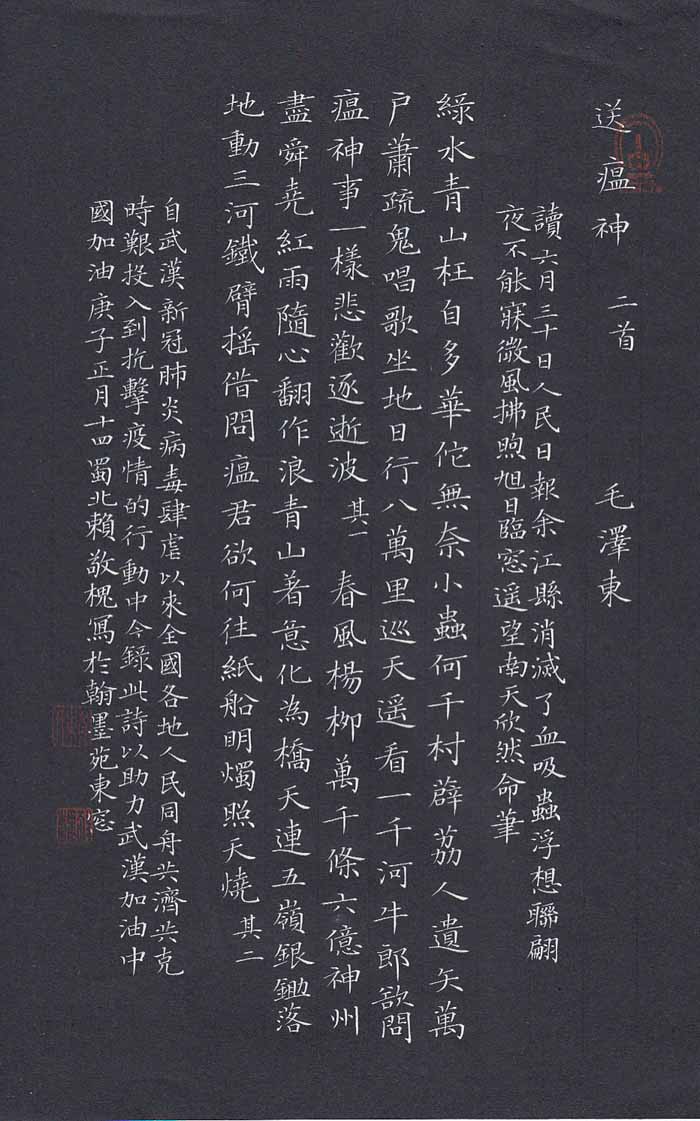 送瘟神 二首 毛澤東
讀六月三十日人民日報余江縣消滅了血吸蟲浮想聯翩
夜不能寐微風拂煦旭日臨窓遥望南天欣然命筆
緑水青山枉自多華佗無奈小蟲何千村薜荔人遺矢萬
户蕭疏鬼唱歌坐地日行八萬里巡天遥看一千河牛郎欲問
瘟神事一樣悲歡逐逝波 其一 春風楊柳萬千條六億神州
盡舜堯紅雨隨心翻作浪青山著意化為橋天連五嶺銀鋤落
地動三河鐵臂摇借問瘟君欲何往紙船明燭照天燒 其二
自武漢新冠肺炎病毒肆虐以來全國各地人民同舟共濟共克
時艱投入到抗擊疫情的行動中今録此詩以助力武漢加油中
國加油庚子正月十四蜀北賴敬槐寫於翰墨苑東窓